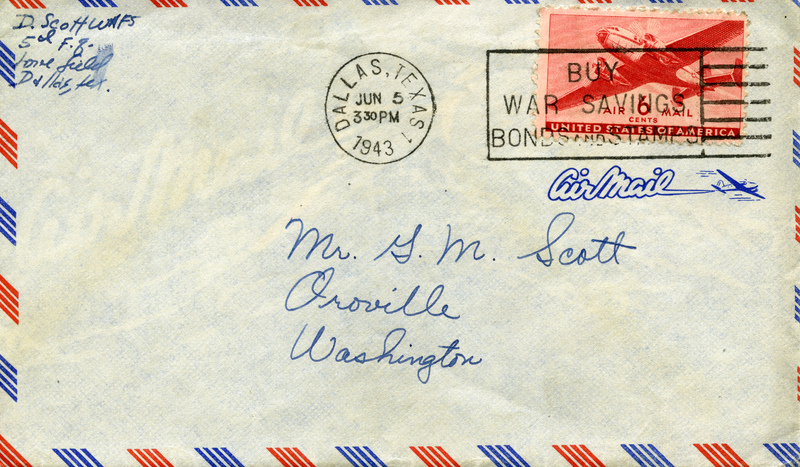 D. Scott WAFS
5th F.G.
Love Field
Dallas, Tex.
DALLAS, TEXAS 1
JUN 5
3 30 PM
1943
BUY
WAR SAVINGS
BONDS AND STAMPS
AIR 6 MAIL
CENTS
UNITED STATES OF AMERICA
Air Mail
Mr. G. M. Scott
Oroville
Washington